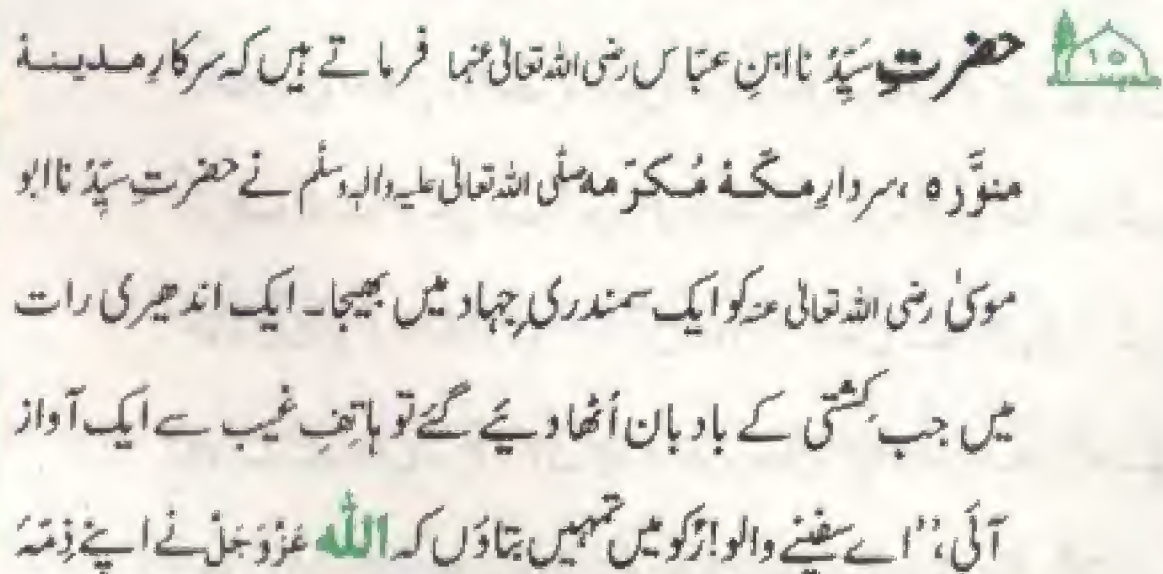 ۱۵ حضرتِ سَیِّدُنا ابنِ عبّاس رضی اللہ تعالیٰ عنہما فرماتے ہیں کہ سرکارِ مدینۂ
منوَّرہ، سردارِ مکّۂ مُکرّمہ صلَّی اللہ تعالیٰ علیہ واٰلہٖ وسلَّم نے حضرتِ سَیِّدُنا ابو
موسیٰ رضی اللہ تعالیٰ عنہ کو ایک سمندری جِہاد میں بھیجا۔ ایک اندھیری رات
میں جب کِشتی کے بادبان اُٹھا دیئے گئے تو ہاتِفِ غیب سے ایک آواز
آئی، ”اے سفینے والو! رُکو میں تمہیں بتاؤں کہ اللّٰہ عَزَّوَجَلَّ نے اپنے ذِمّہَ